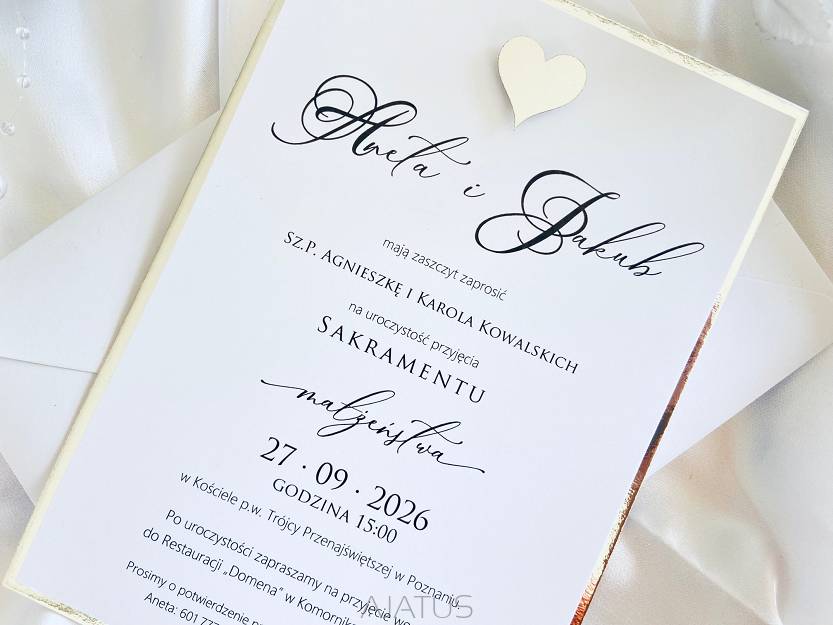 Aneta i Jakub
mają zaszczyt zaprosić
Sz.P. Agnieszkę i Karola Kowalskich
na uroczystość przyjęcia
SAKRAMENTU
małżeństwa
27 · 09 · 2026
GODZINA 15:00
w Kościele p.w. Trójcy Przenajświętszej w Poznaniu.
Po uroczystości zapraszamy na przyjęcie
do Restauracji „Domena” w
Prosimy o potwierdzenie
Aneta: 601
AJATUS